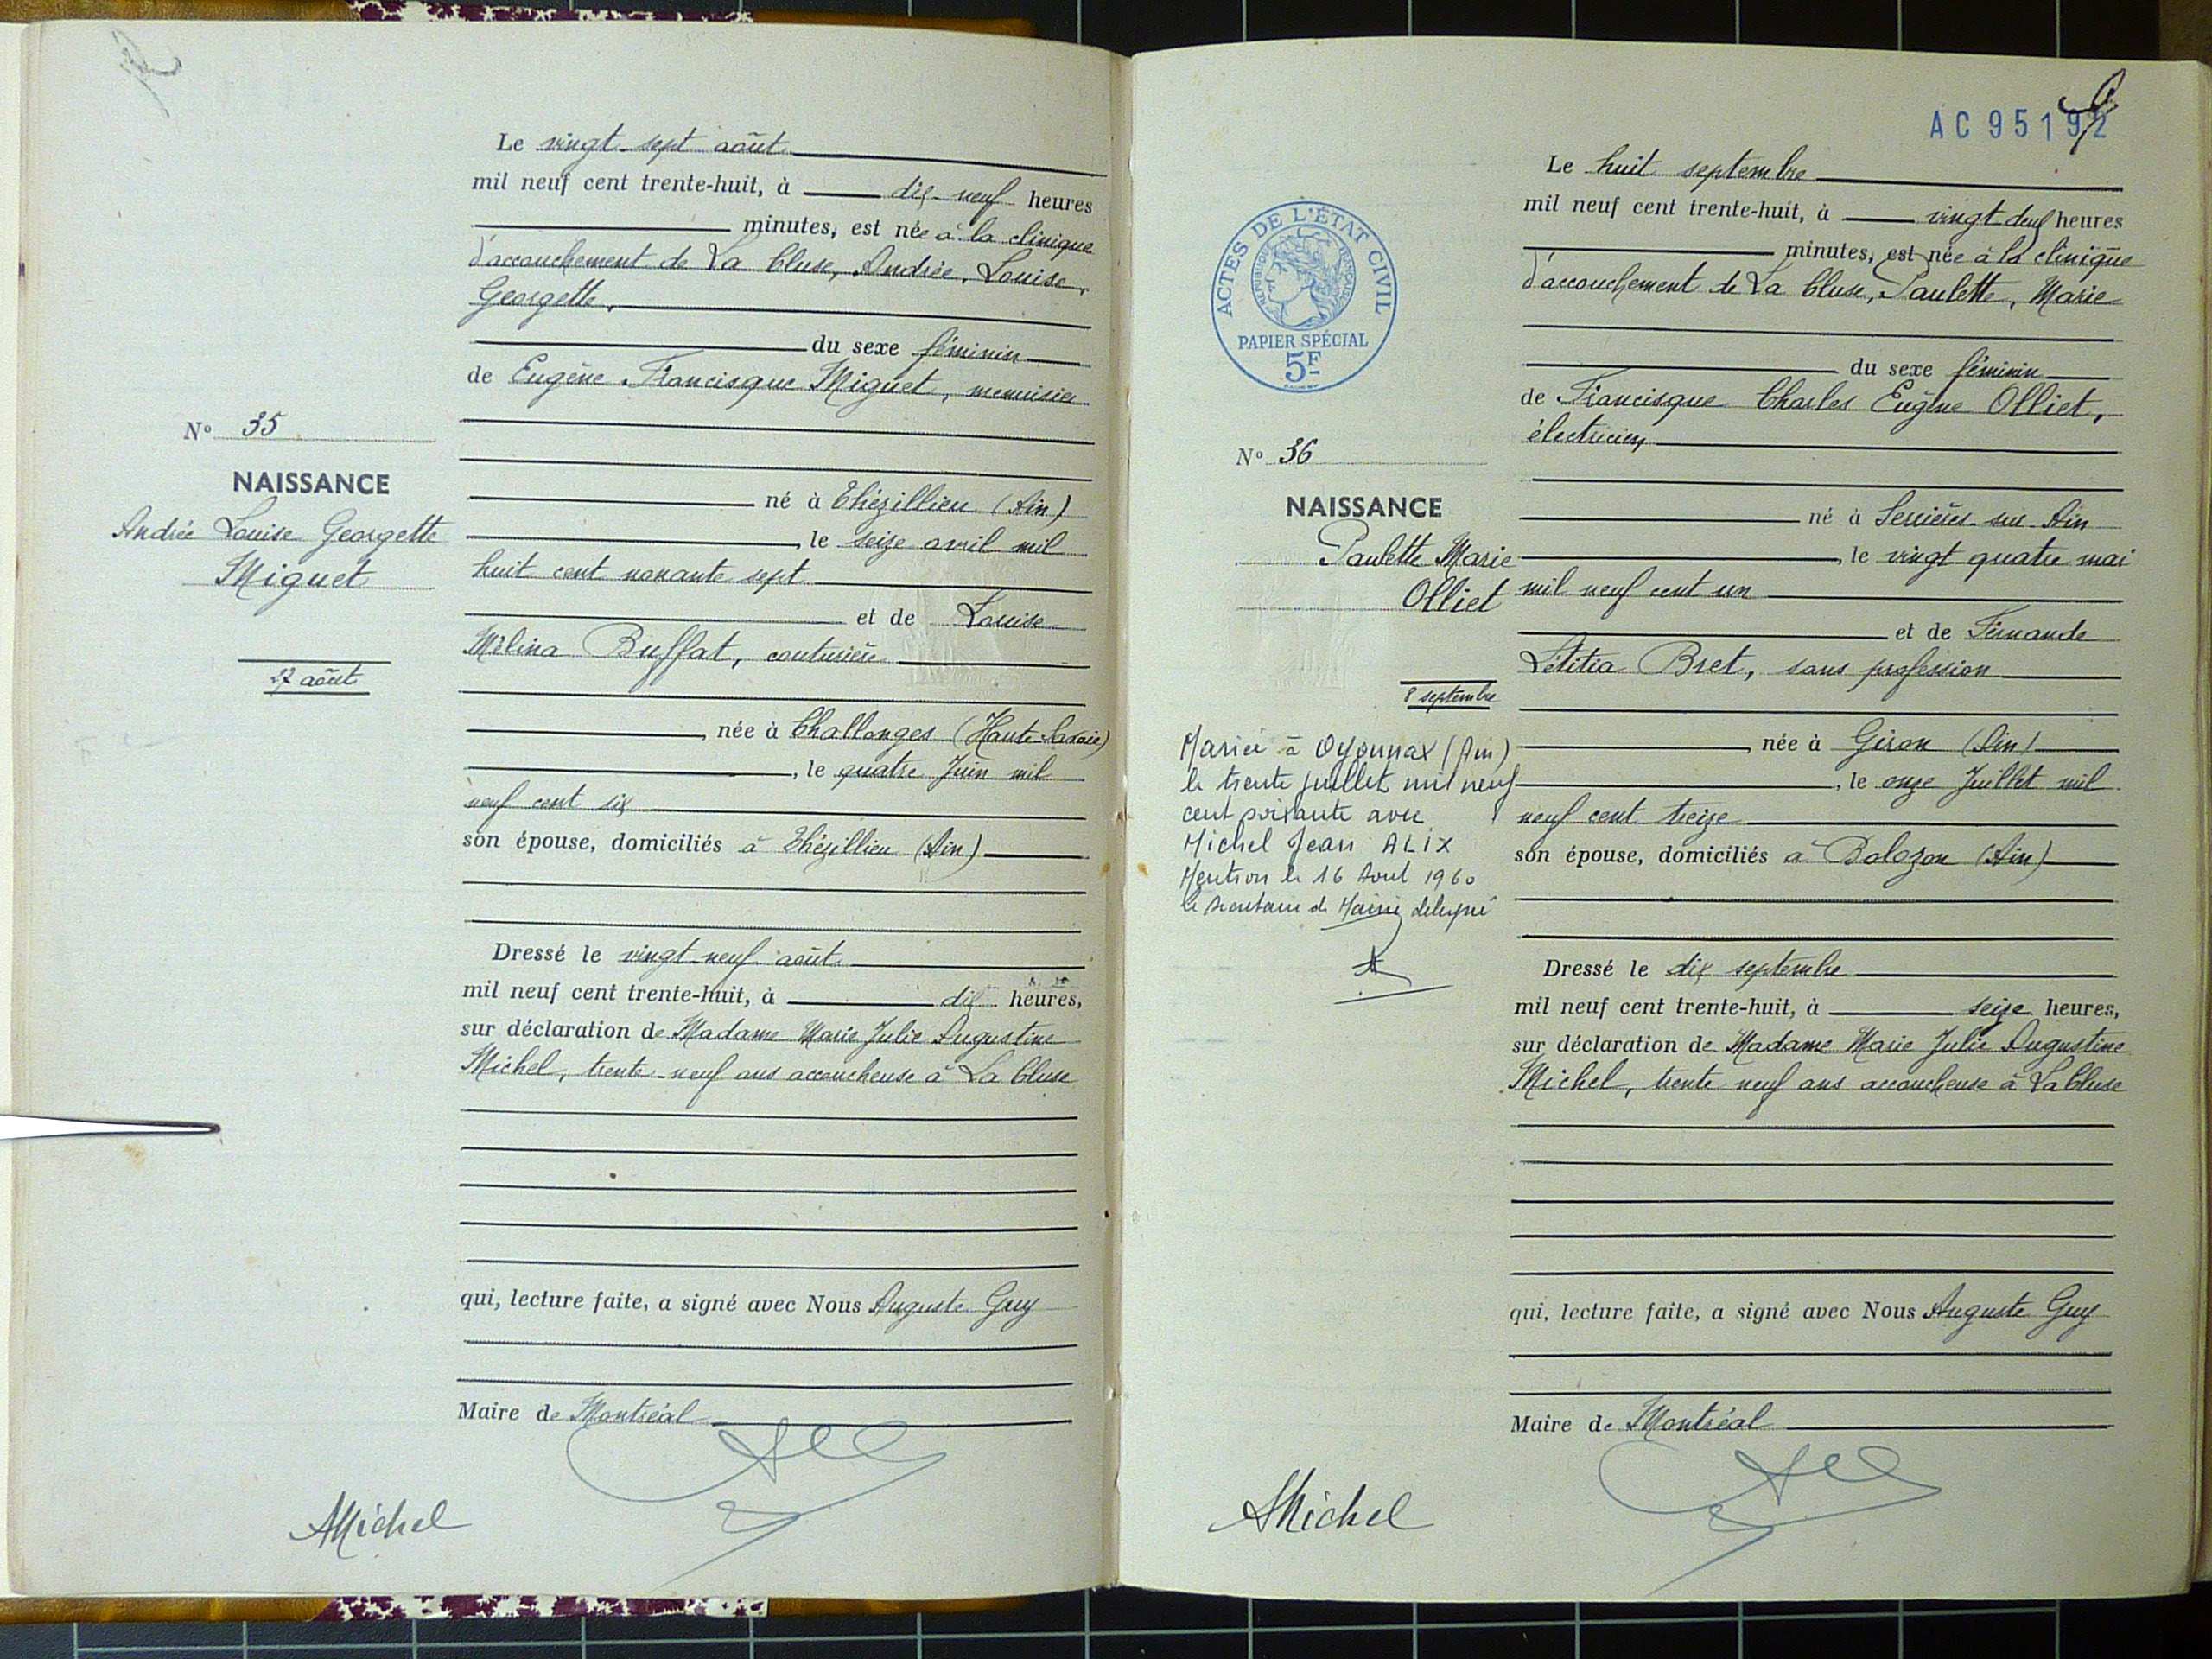 Le vingt-sept août
mil neuf cent trente-huit, à dix-neuf heures
minutes, est née à la clinique
d'accouchement de La Cluse, Andrée, Louise,
Georgette,
du sexe féminin
de Eugène Francisque Miguet, menuisier
né à Thézillieu (Ain)
, le seize avril mil
huit cent nonante sept
et de Louise
Mélina Buffat, couturière
née à Challonges (Haute-Savoie)
, le quatre Juin mil
neuf cent six
son épouse, domiciliés à Thézillieu (Ain)
Dressé le vingt-neuf août
mil neuf cent trente-huit, à dix heures,
sur déclaration de Madame Marie Julie Augustine
Michel, trente-neuf ans accoucheuse à La Cluse
qui, lecture faite, a signé avec Nous Auguste Guy
Maire de Montréal
Nº 35
NAISSANCE
Andrée Louise Georgette
Miguet
27 août
AMichel
AC 95192
Le huit septembre
mil neuf cent trente-huit, à vingt-deux heures
minutes, est née à la clinique
d'accouchement de La Cluse, Paulette, Marie
du sexe féminin
de Francisque Charles Eugène Olliet,
électricien
né à Serrières-sur-Ain
, le vingt quatre mai
mil neuf cent un
et de Fernande
Létitia Bret, sans profession
née à Giron (Ain)
, le onze Juillet mil
neuf cent treize
son épouse, domiciliés à Bolozon (Ain)
Dressé le dix septembre
mil neuf cent trente-huit, à seize heures,
sur déclaration de Madame Marie Julie Augustine
Michel, trente neuf ans accoucheuse à La Cluse
qui, lecture faite, a signé avec Nous Auguste Guy
Maire de Montréal
ACTES DE L'ÉTAT CIVIL
RÉPUBLIQUE FRANÇAISE
PAPIER SPÉCIAL
5F
Nº 36
NAISSANCE
Paulette Marie
Olliet
8 septembre
Mariée à Oyonnax (Ain)
le trente juillet mil neuf
cent soixante avec
Michel Jean ALIX
Mention le 16 Aout 1960
le secrétaire de Mairie délégué
AMichel